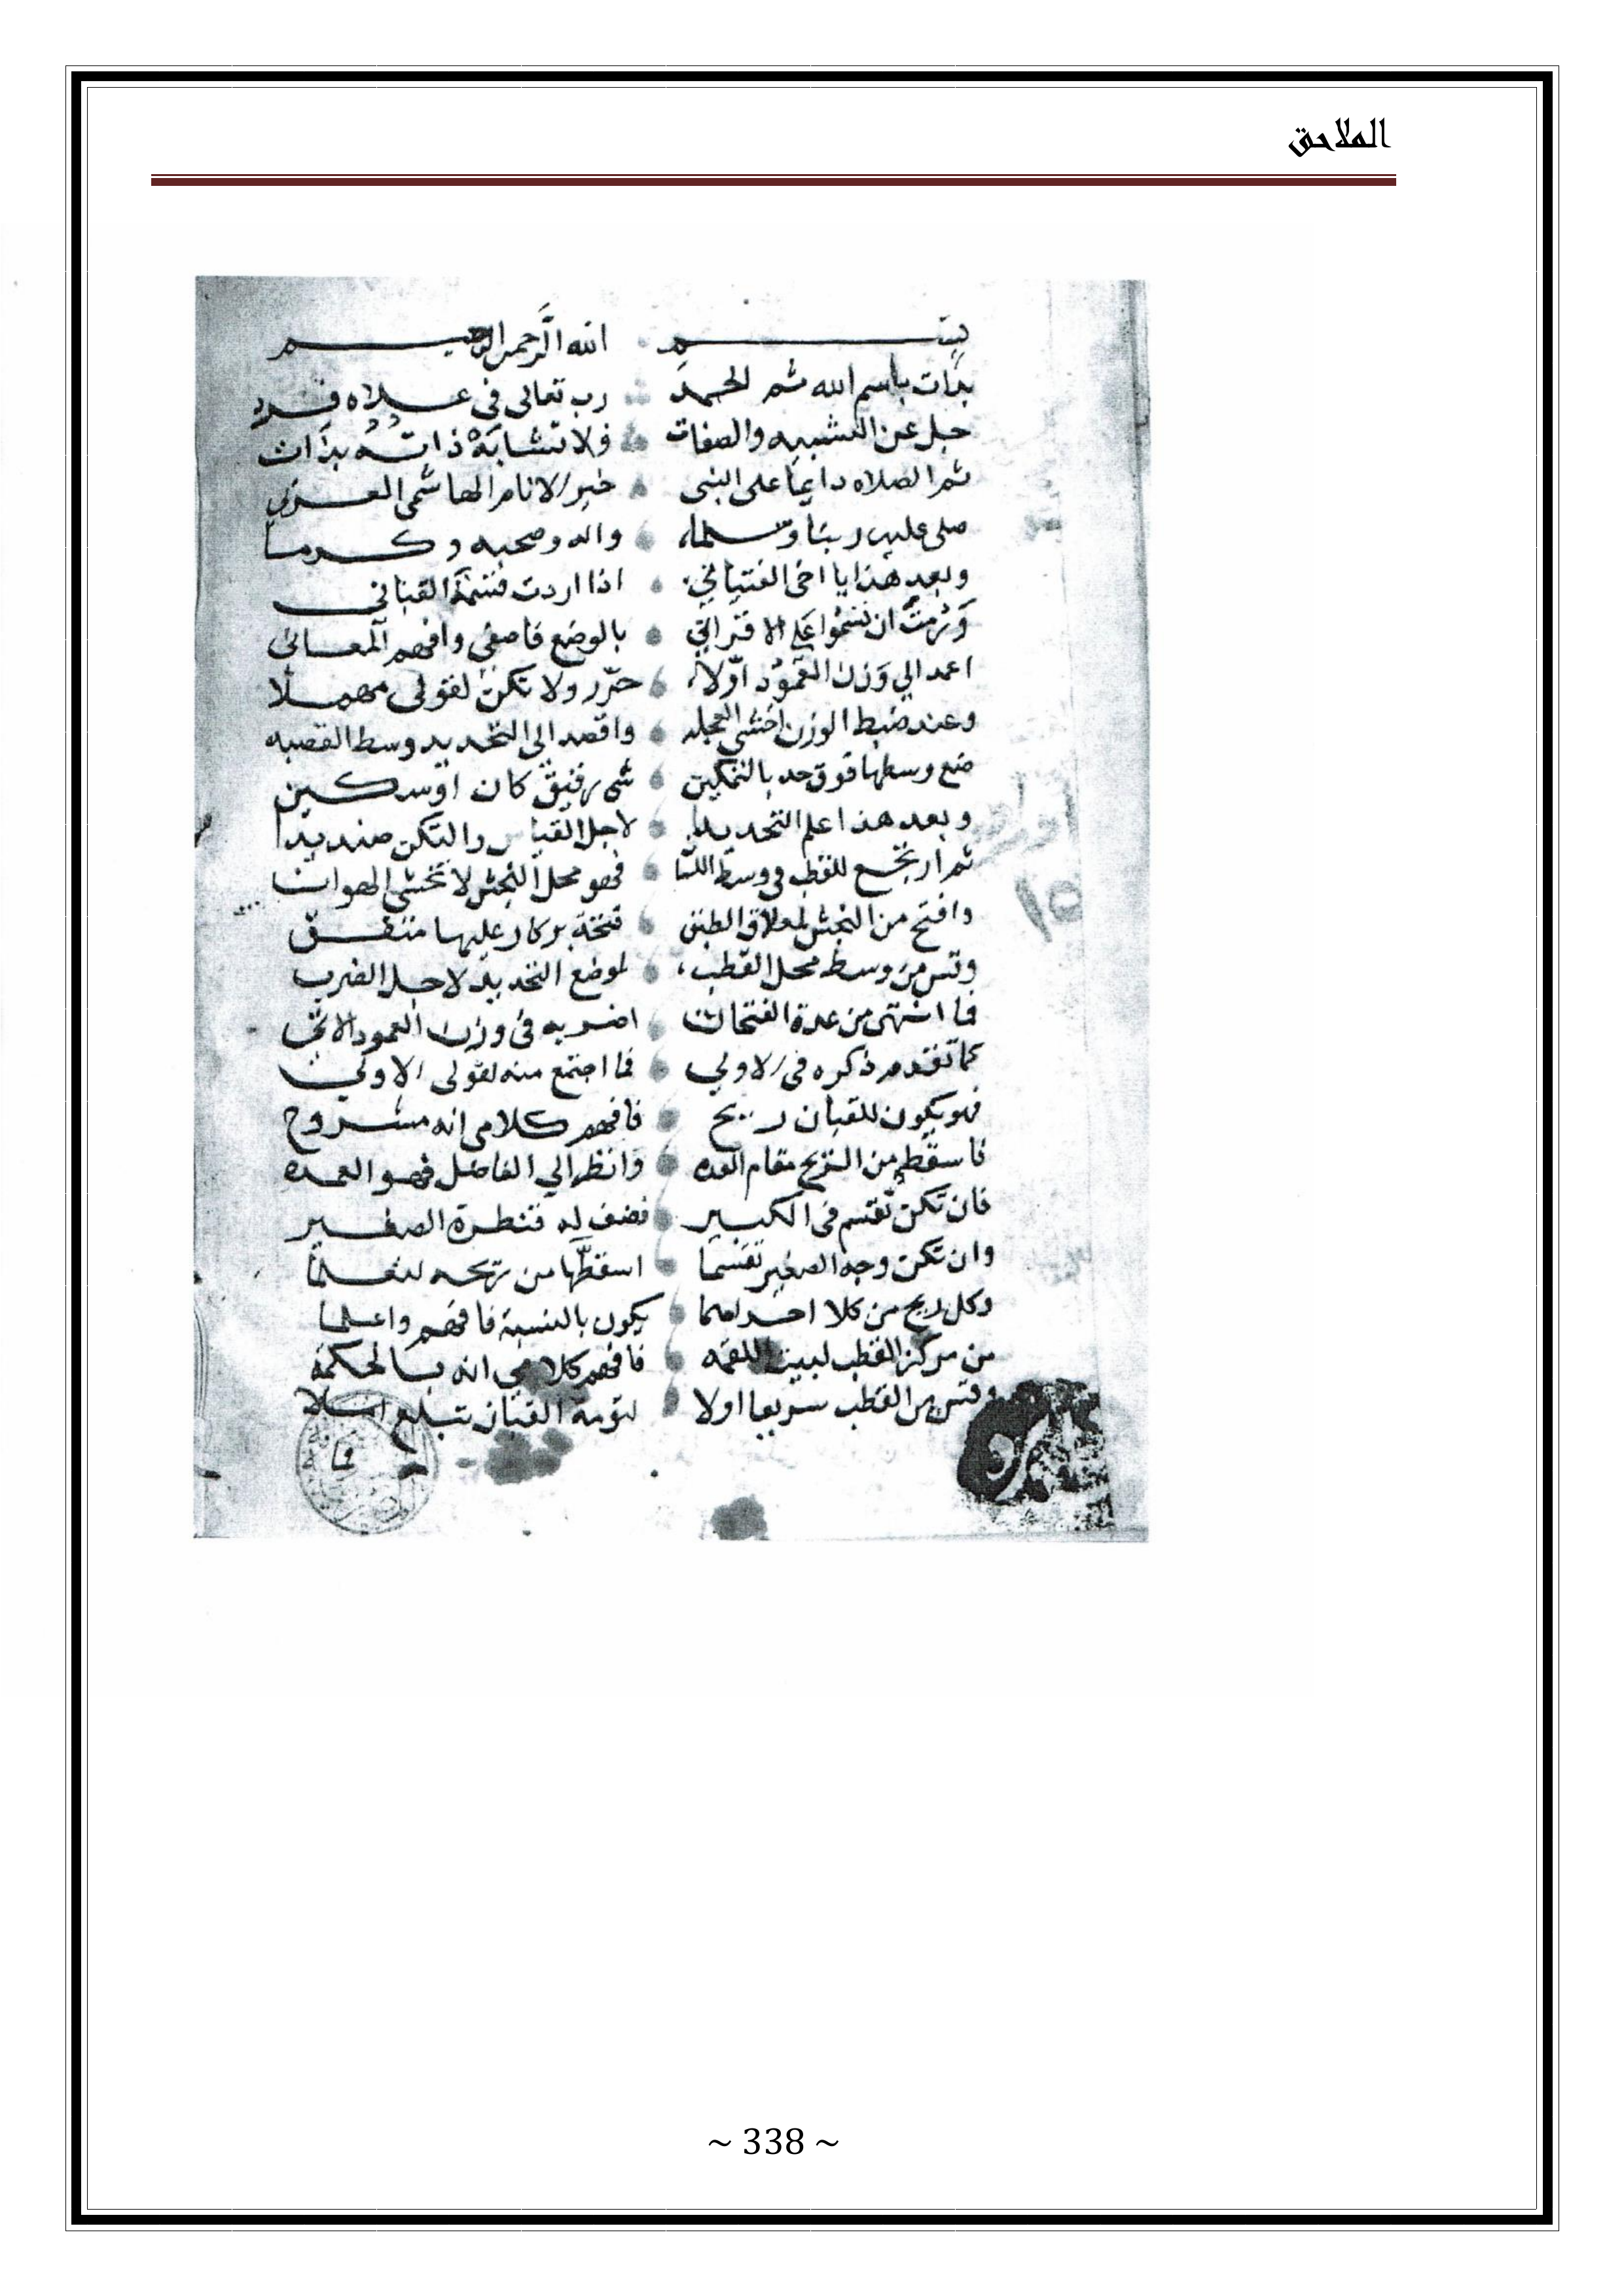 الملاحق
بسم الله الرحمن الرحيم
بدات باسم الله ثم الحمد رب تعالى في علاه فرد
جل عن التشبيه والصفات فلا تشابه ذاته بذات
ثم الصلاه دايما على النبي خير الانام الهاشمي العربي
صلى عليه ربنا وسلما واله وصحبه وكرما
وبعد هذا يا اخي الفتياني اذا اردت صنعة القباني
ورمت ان تسموا على الاقراني بالوضع فاصغي وافهم المعاني
اعمد الي وزن العمود اولا حرر ولا تكن لقولى مهملا
وعند ضبط الوزن اخشي العجله واقصد الي التحديد وسط القصبه
ضع وسطها فوق حد بالتمكين شى رقيق كان او سكين
وبعد هذا اعلم التحديدا لاجل القياس والتكن صنديدا
ثم ار تجع للقطب في وسط فهو محل النجش لا تخشى الهوان
وافتح من النجش لمعلاق الطبق فتحة بركار عليها متفق
وقس من وسط محل القطب لموضع التحديد لاجل الضرب
فما انتهى من عدة الفتحات اضربه في وزن العمود الاتي
كما تقدم ذكره في الاولي فما اجتمع منه لقولى الاولي
فهو يكون للقبان ريح فافهم كلامى انه مشروح
فاسقط من الريح مقام العده وانظر الي الفاضل فهو العمده
فان تكن تقسم في الكبير فضف له قنطرة الصغير
وان تكن وجه الصغير تقسما اسقطها من ريحه لتعلما
وكل ريح من كلا احداهما يكون بالنسبة فافهم واعلما
من مركز القطب لبيت اللقمه فافهم كلامي انه بالحكمة
وقس من القطب سريعا اولا القبان تبلغ
~ 338 ~